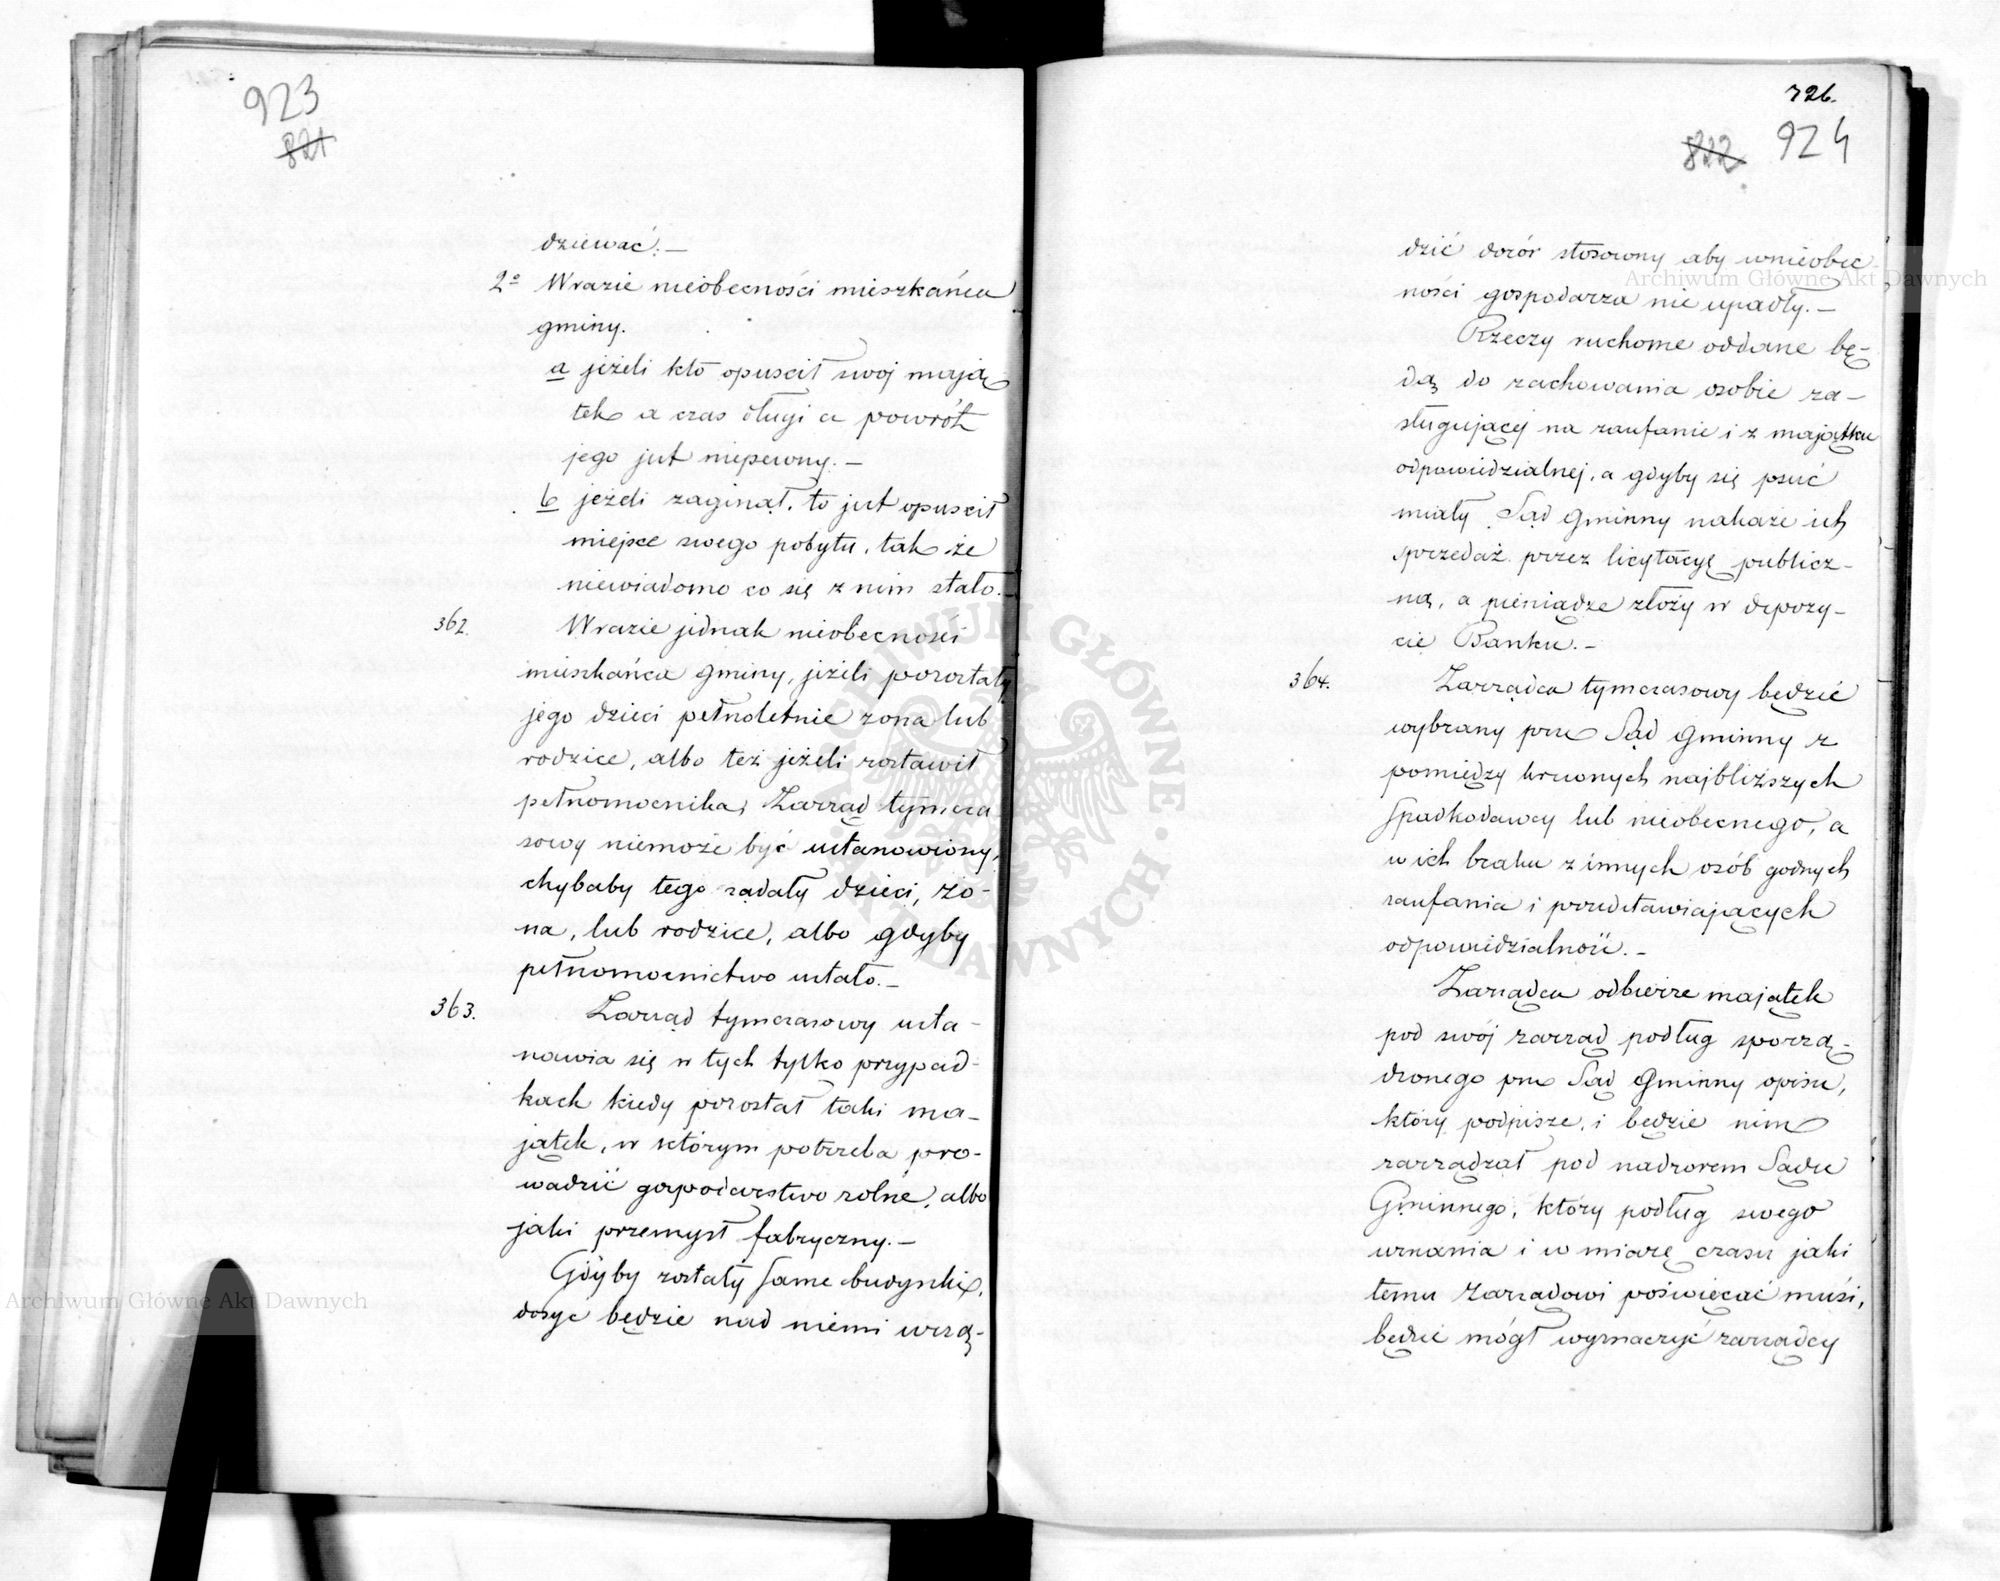 923
821
dziewać.—
2o Wrazie nieobecności mieszkańca
gminy.
a jeżeli kto opuścił swój mają
tek a czas długi a powrót
jego jest niepewny.—
b jeżeli zaginął, to jest opuścił
miejsce swego pobytu, tak że
niewiadomo co się z nim stało.—
362. Wrazie jednak nieobecności
mieszkańca gminy, jeżeli pozostały
jego dzieci pełnoletnie żona lub
rodzice, albo też jeżeli zostawił
pełnomocnika, Zarząd tymcza
sowy niemoże być ustanowiony,
chybaby tego żądały dzieci, żo-
na, lub rodzice, albo gdyby
pełnomocnictwo ustało.—
363. Zarząd tymczasowy usta-
nawia się w tych tylko przypad-
kach kiedy pozostał taki ma-
jątek, w którym potrzeba pro-
wadzić gospodarstwo rolne, albo
jaki przemysł fabryczny.—
Gdyby zostały same budynki,
dosyć będzie nad niemi urzą-
726.
822 924
dzić dozór stosowny aby wnieobec
ności gospodarza nie upadły.—
Rzeczy ruchome oddane bę-
dą do zachowania osobie za-
sługującej na zaufanie i z majątku
odpowiedzialnej, a gdyby się psuć
miały Sąd Gminny nakaże ich
sprzedaż przez licytacyę publicz-
ną, a pieniądze złoży w depozy-
cie Banku.—
364. Zarządca tymczasowy będzie
wybrany przez Sąd Gminny z
pomiędzy krewnych najbliższych
Spadkodawcy lub nieobecnego, a
w ich braku z innych osób godnych
zaufania i przedstawiających
odpowiedzialność.—
Zarządca odbierze majątek
pod swój zarząd podług sporzą-
dzonego przez Sąd Gminny opisu,
który podpisze, i będzie nim
zarządzał pod nadzorem Sądu
Gminnego, który podług swego
uznania i w miarę czasu jaki
temu Zarządowi poświęcać musi,
będzie mógł wyznaczyć zarządcy
Archiwum Główne Akt Dawnych
Archiwum Główne Akt Dawnych
ARCHIWUM GŁÓWNE AKT DAWNYCH